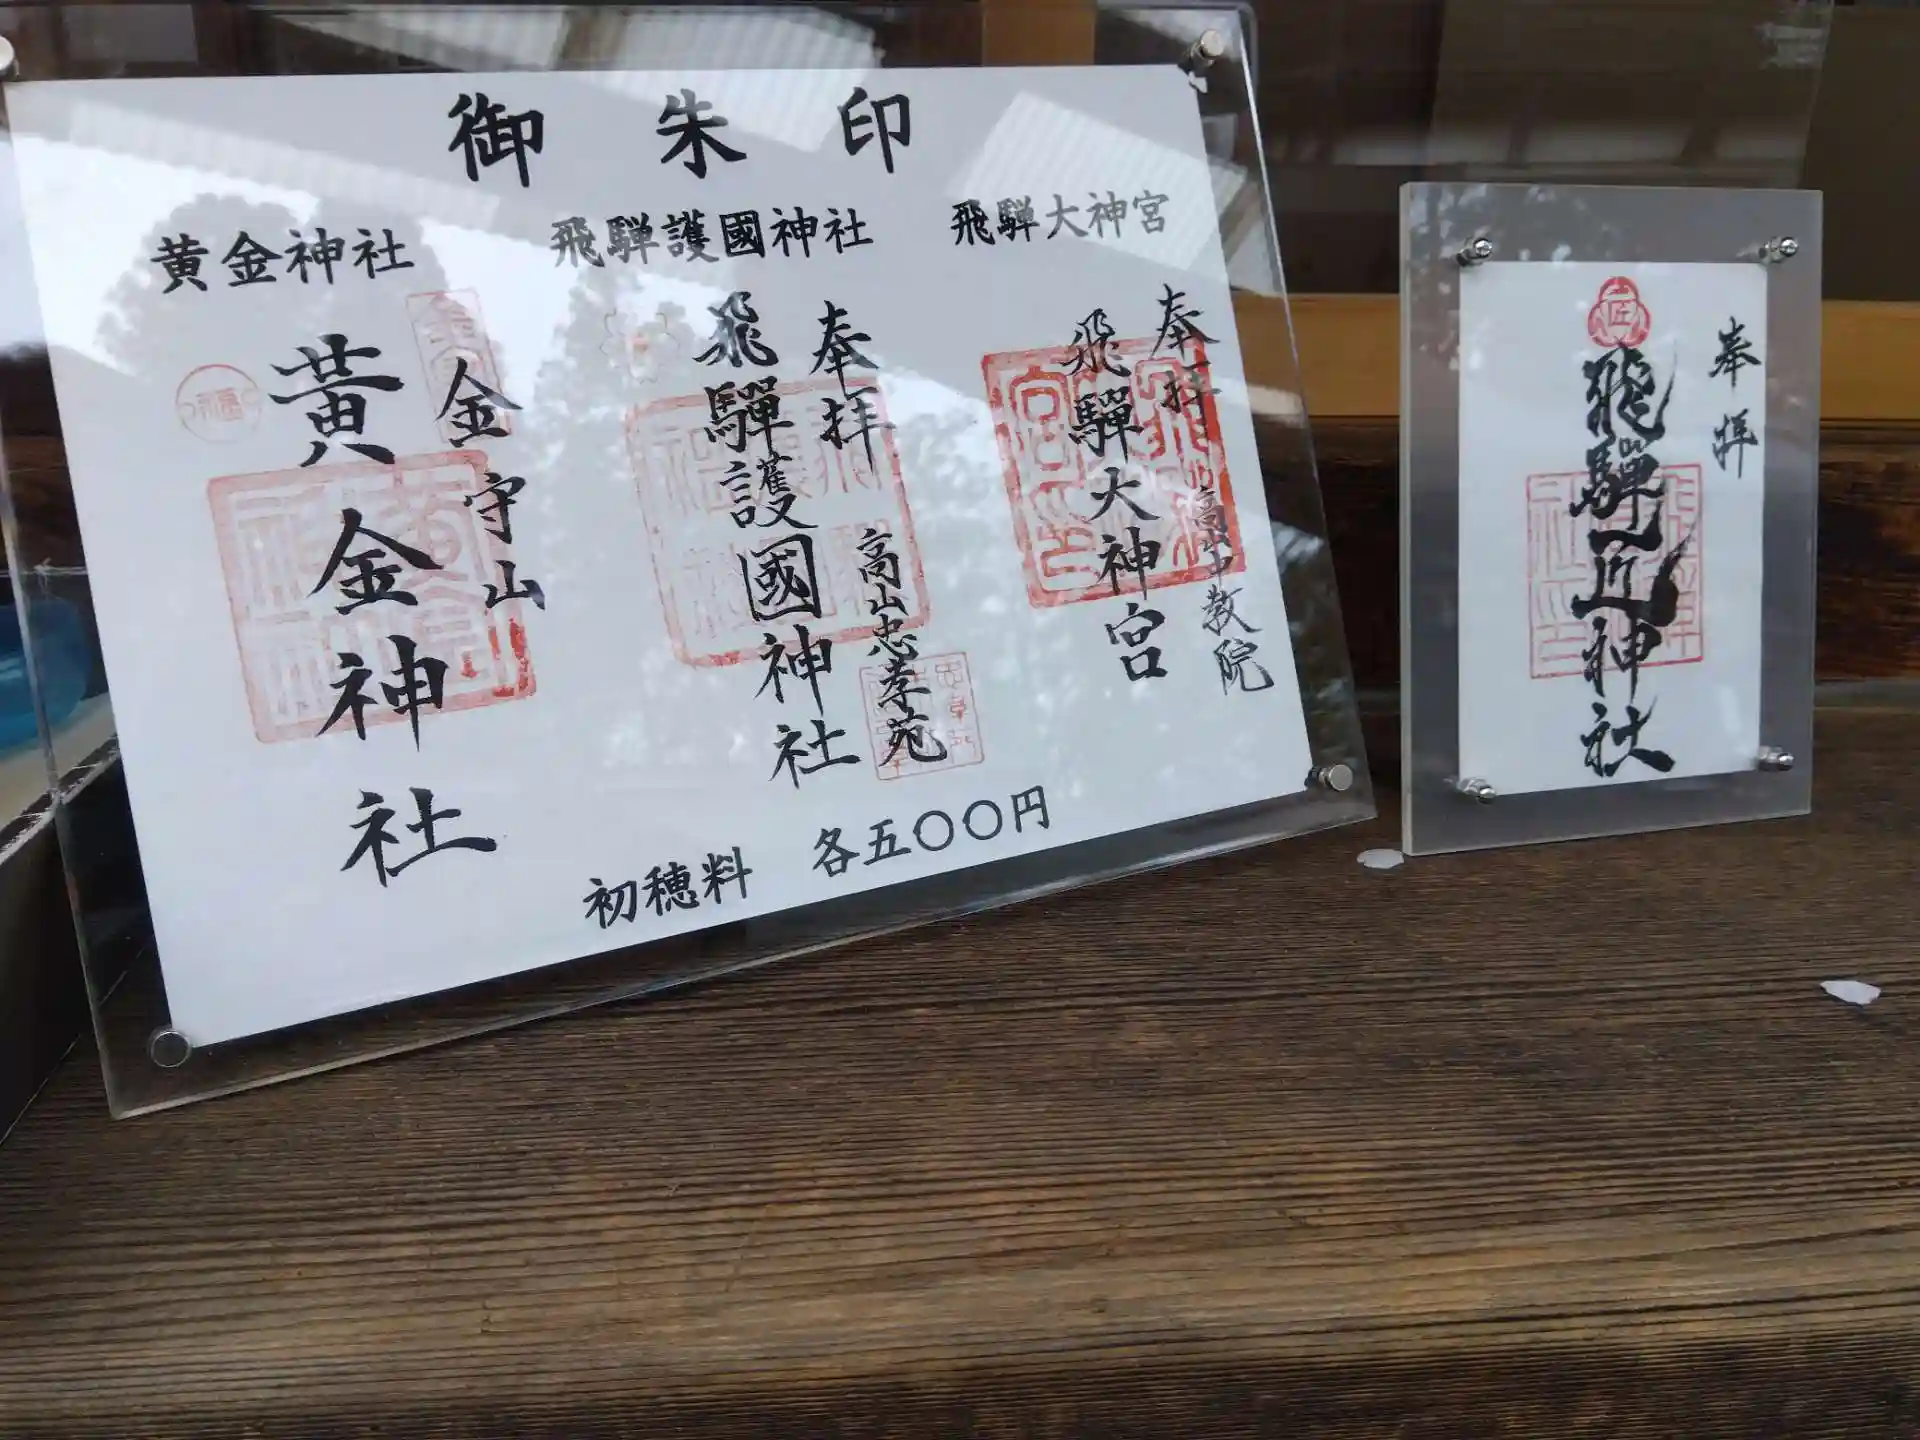 御朱印
飛騨大神宮
飛騨護國神社
黄金神社
奉拝
高山中教院
飛騨大神宮
奉拝
高山忠孝苑
飛騨護國神社
金守山
黄金神社
福
初穂料 各五〇〇円
奉拝
匠
飛騨匠神社